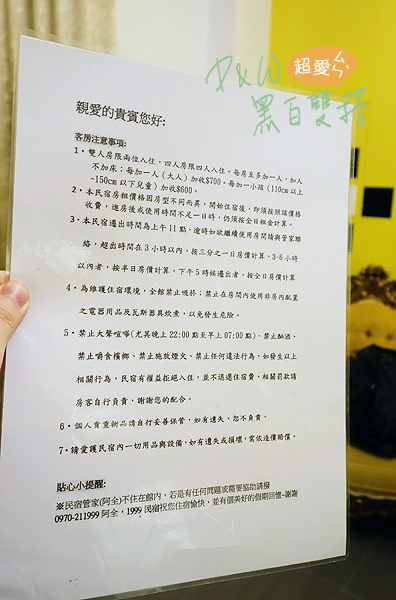 P&W
超愛ㄙ
黑白雙搭
親愛的貴賓您好:
客房注意事項:
1、雙人房限兩位入住，四人房限四人入住。每房至多加一人，加人
不加床；每加一人（大人）加收$700。每加一小孩(110cm以上
~150cm以下兒童）加收$600。
2、本民宿房租價格因房型不同而異，開始住宿後，即須按照該價格
收費，進房後或使用時間不足一日時，仍須按全日租金計算。
3、本民宿遷出時間為上午11點，逾時如欲繼續使用房間請與管家聯
絡，超出時間在3小時以內，按三分之一日房價計算，3-6小時
以內者，按半日房價計算，下午5時後遷出者，按全日房價計算
4、為維護住宿環境，全館禁止吸菸；禁止在房間內使用非房內配置
之電器用品及瓦斯器具炊煮，以免發生危險。
5、禁止大聲喧嘩(尤其晚上22:00點至早上07:00點)、禁止酗酒、
禁止嚼食檳榔、禁止施放煙火、禁止任何違法行為，如發生以上
相關行為，民宿有權益拒絕入住，並不退還住宿費、相關罰款請
房客自行負責，謝謝您的配合。
6、個人貴重物品請自行妥善保管，如有遺失，恕不負責。
7、請愛護民宿內一切用品與設備，如有遺失或損壞，需依造價賠償。
貼心小提醒:
※民宿管家(阿全)不住在館內，若是有任何問題或需要協助請撥
0970-211999 阿全，1999民宿祝您住宿愉快，並有個美好的假期回憶~謝謝